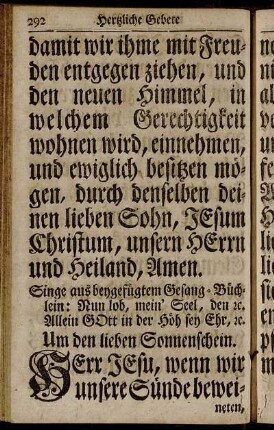 292 Hertzliche Gebete
damit wir ihme mit Freu-
den entgegen ziehen, und
den neuen Himmel, in
welchem Gerechtigkeit
wohnen wird, einnehmen,
und ewiglich besitzen mö-
gen, durch denselben dei-
nen lieben Sohn, JEsum
Christum, unsern HErrn
und Heiland, Amen.
Singe aus beygefügtem Gesang-Büch-
lein: Nun lob, mein' Seel, den ꝛc.
Allein GOtt in der Höh sey Ehr, ꝛc.
Um den lieben Sonnenschein.
HErr JEsu, wenn wir
unsere Sünde bewei-
neten,